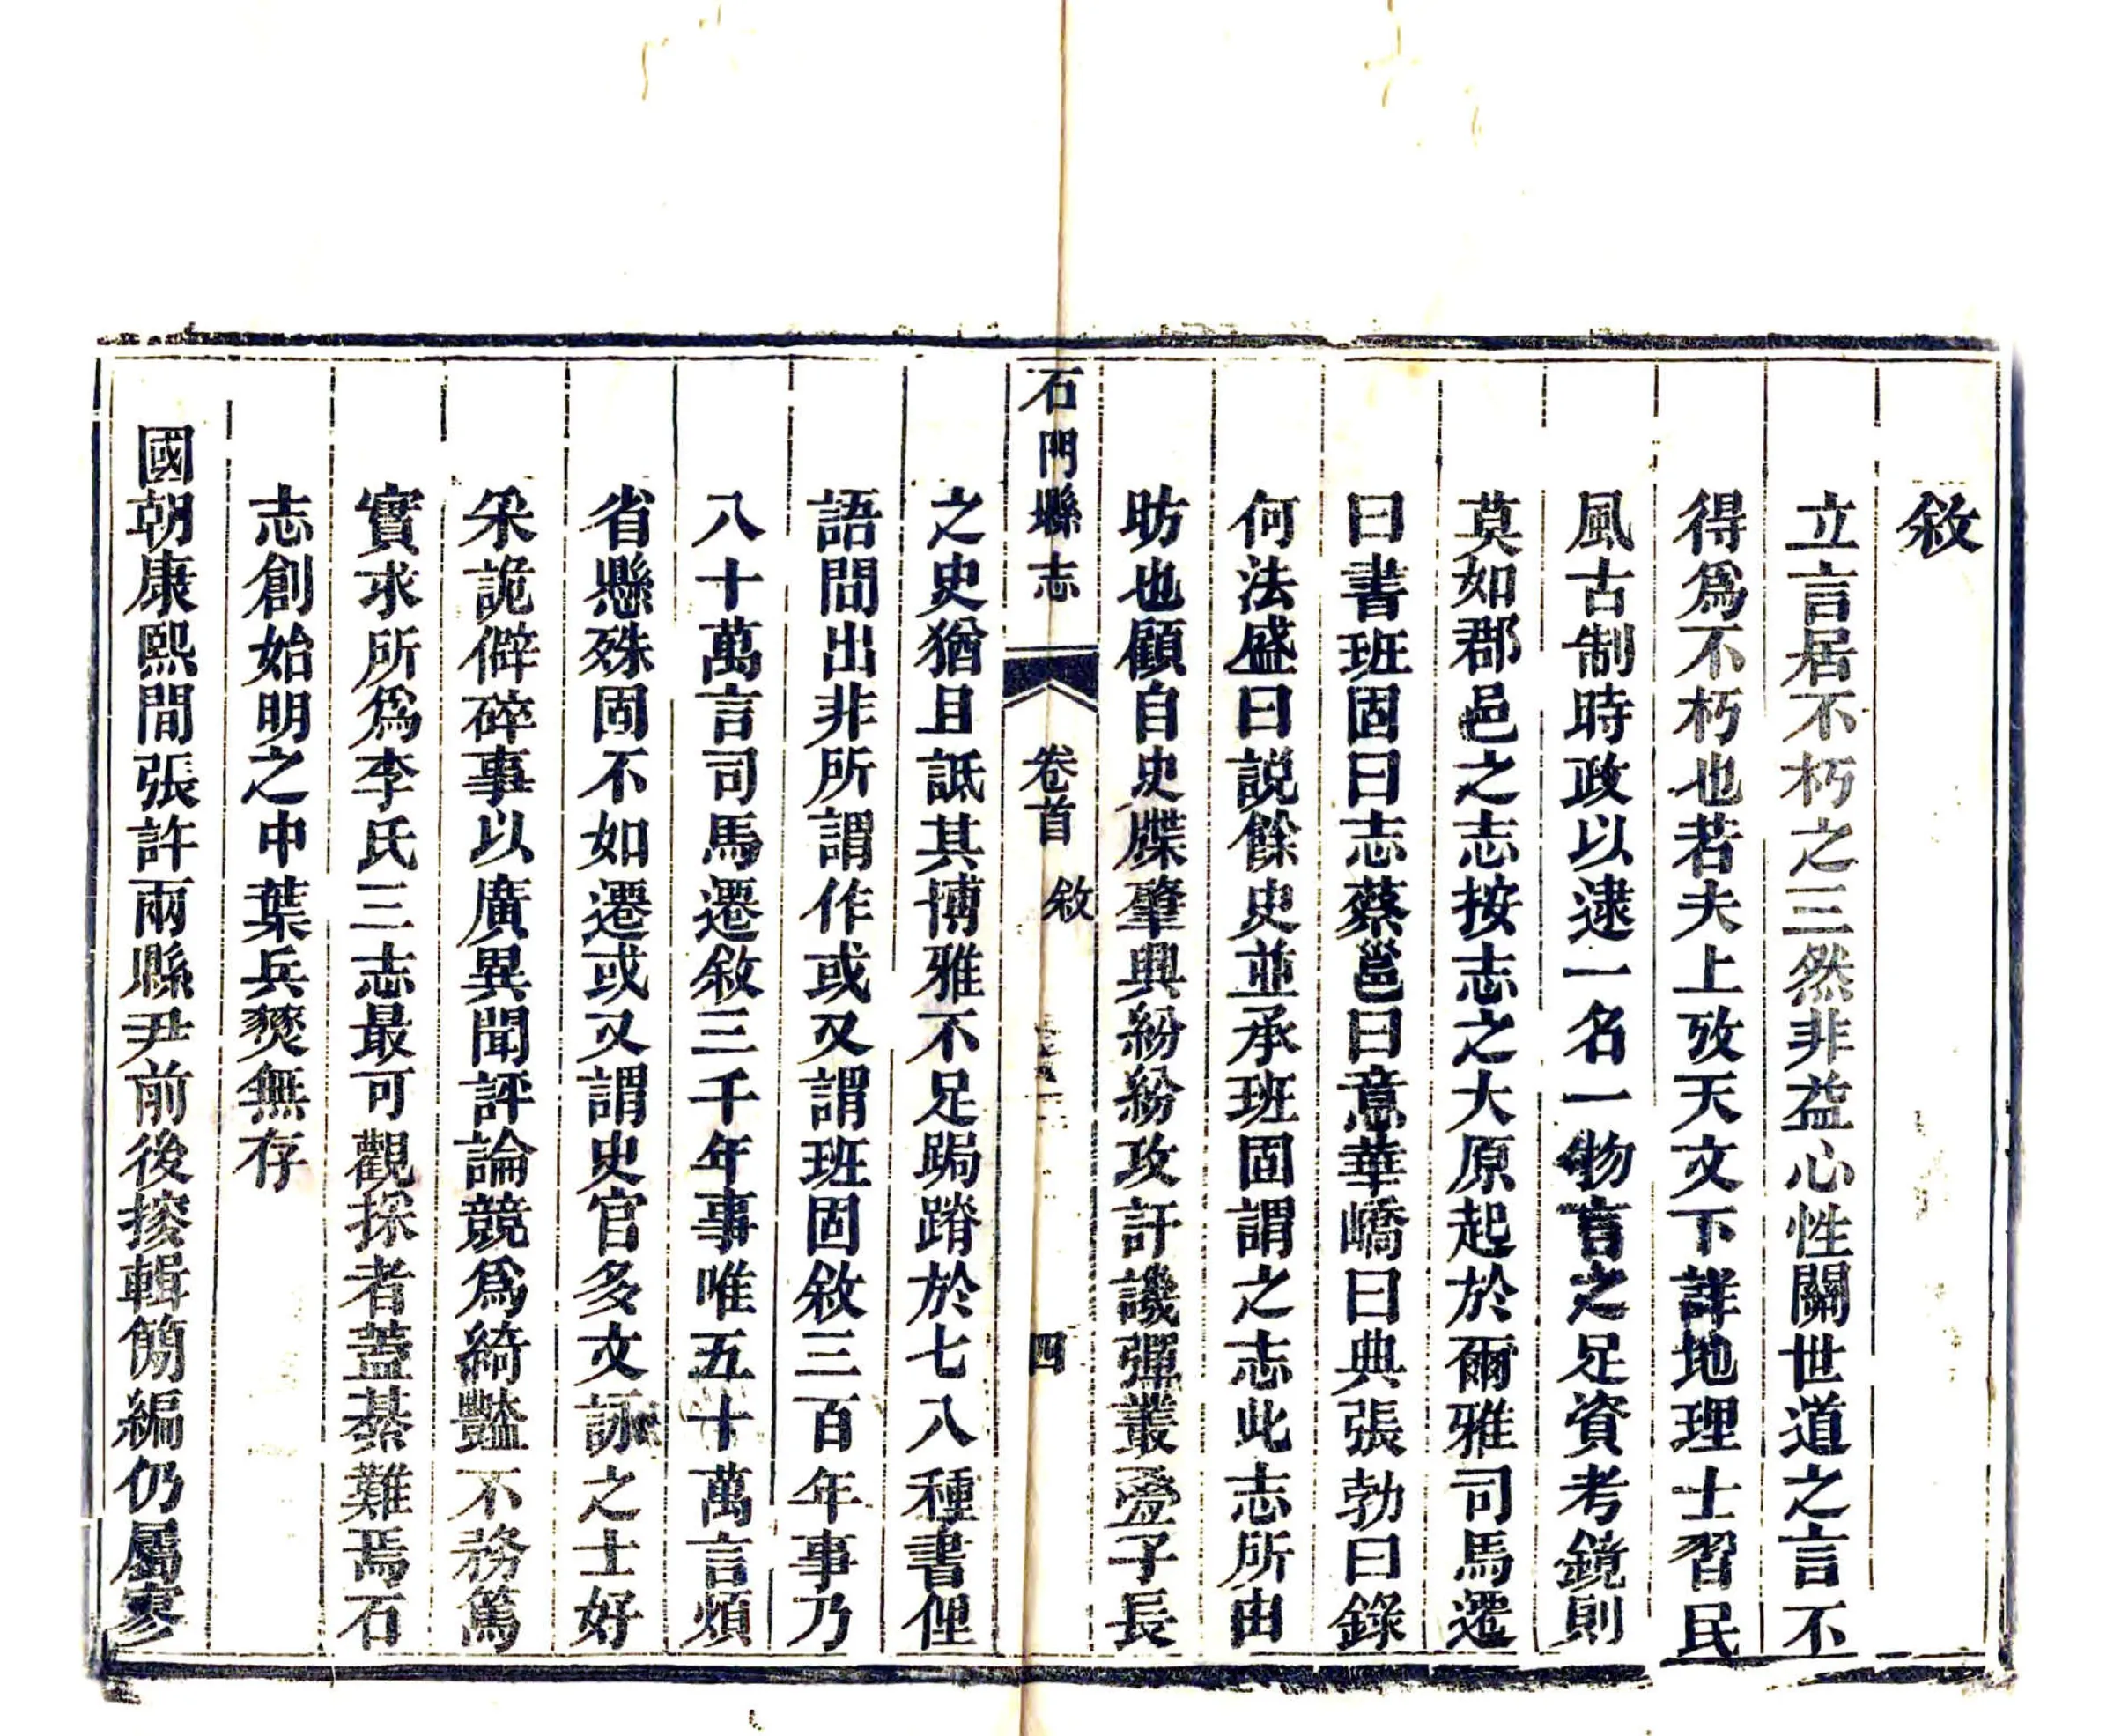 敘
立言居不朽之三然非益心性關世道之言不
得爲不朽也若夫上攷天文下詳地理士習民
風古制時政以逮一名一物言之足資考鏡則
莫如郡邑之志按志之大原起於爾雅司馬遷
曰書班固曰志蔡邕曰意華嶠曰典張勃曰錄
何法盛曰説餘史並承班固謂之志此志所由
昉也顧自史牒肇興紛紛攻訐譏彈叢疊子長
石門縣志
卷首
敘
四
之史猶且詆其博雅不足跼蹐於七八種書俚
語問出非所謂作或又謂班固敘三百年事乃
八十萬言司馬遷敘三千年事唯五十萬言煩
省懸殊固不如遷或又謂史官多文詠之士好
采詭僻碎事以廣異聞評論競爲綺豔不務篤
實求所爲李氏三志最可觀採者蓋綦難焉石
志創始明之中葉兵燹無存
國朝康熙間張許兩縣尹前後搜輯簡編仍屬寥